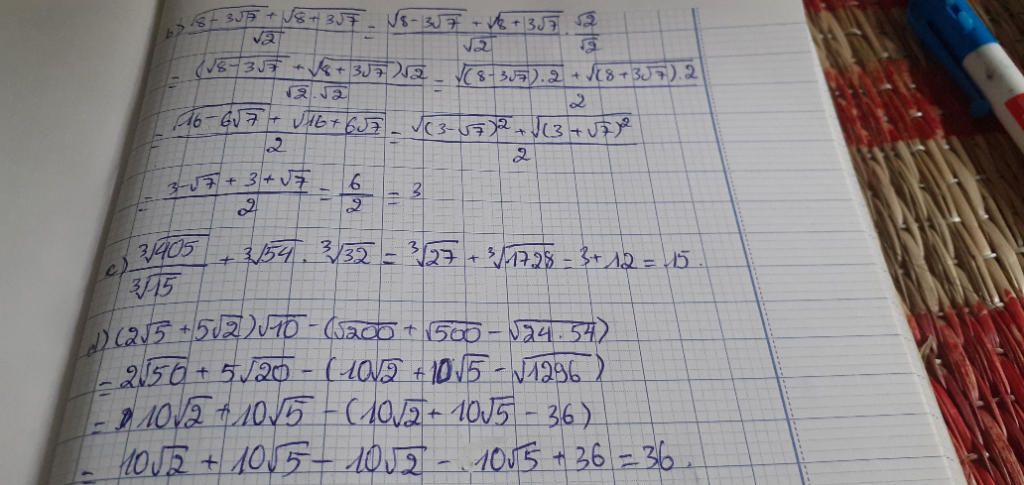 b) (√(8-3√7) + √(8+3√7))/√2 = (√(8-3√7) + √(8+3√7))/√2 · √2/√2
= ((√(8-3√7) + √(8+3√7))√2)/(√2.√2) = (√((8-3√7).2) + √((8+3√7).2))/2
= (√(16-6√7) + √(16+6√7))/2 = (√((3-√7)²) + √((3+√7)²))/2
= (3-√7 + 3+√7)/2 = 6/2 = 3
c) ∛405/∛15 + ∛54 . ∛32 = ∛27 + ∛1728 = 3+12 = 15.
d) (2√5 + 5√2)√10 - (√200 + √500 - √(24.54))
= 2√50 + 5√20 - (10√2 + 10√5 - √1296)
= 10√2 + 10√5 - (10√2 + 10√5 - 36)
= 10√2 + 10√5 - 10√2 - 10√5 + 36 = 36.